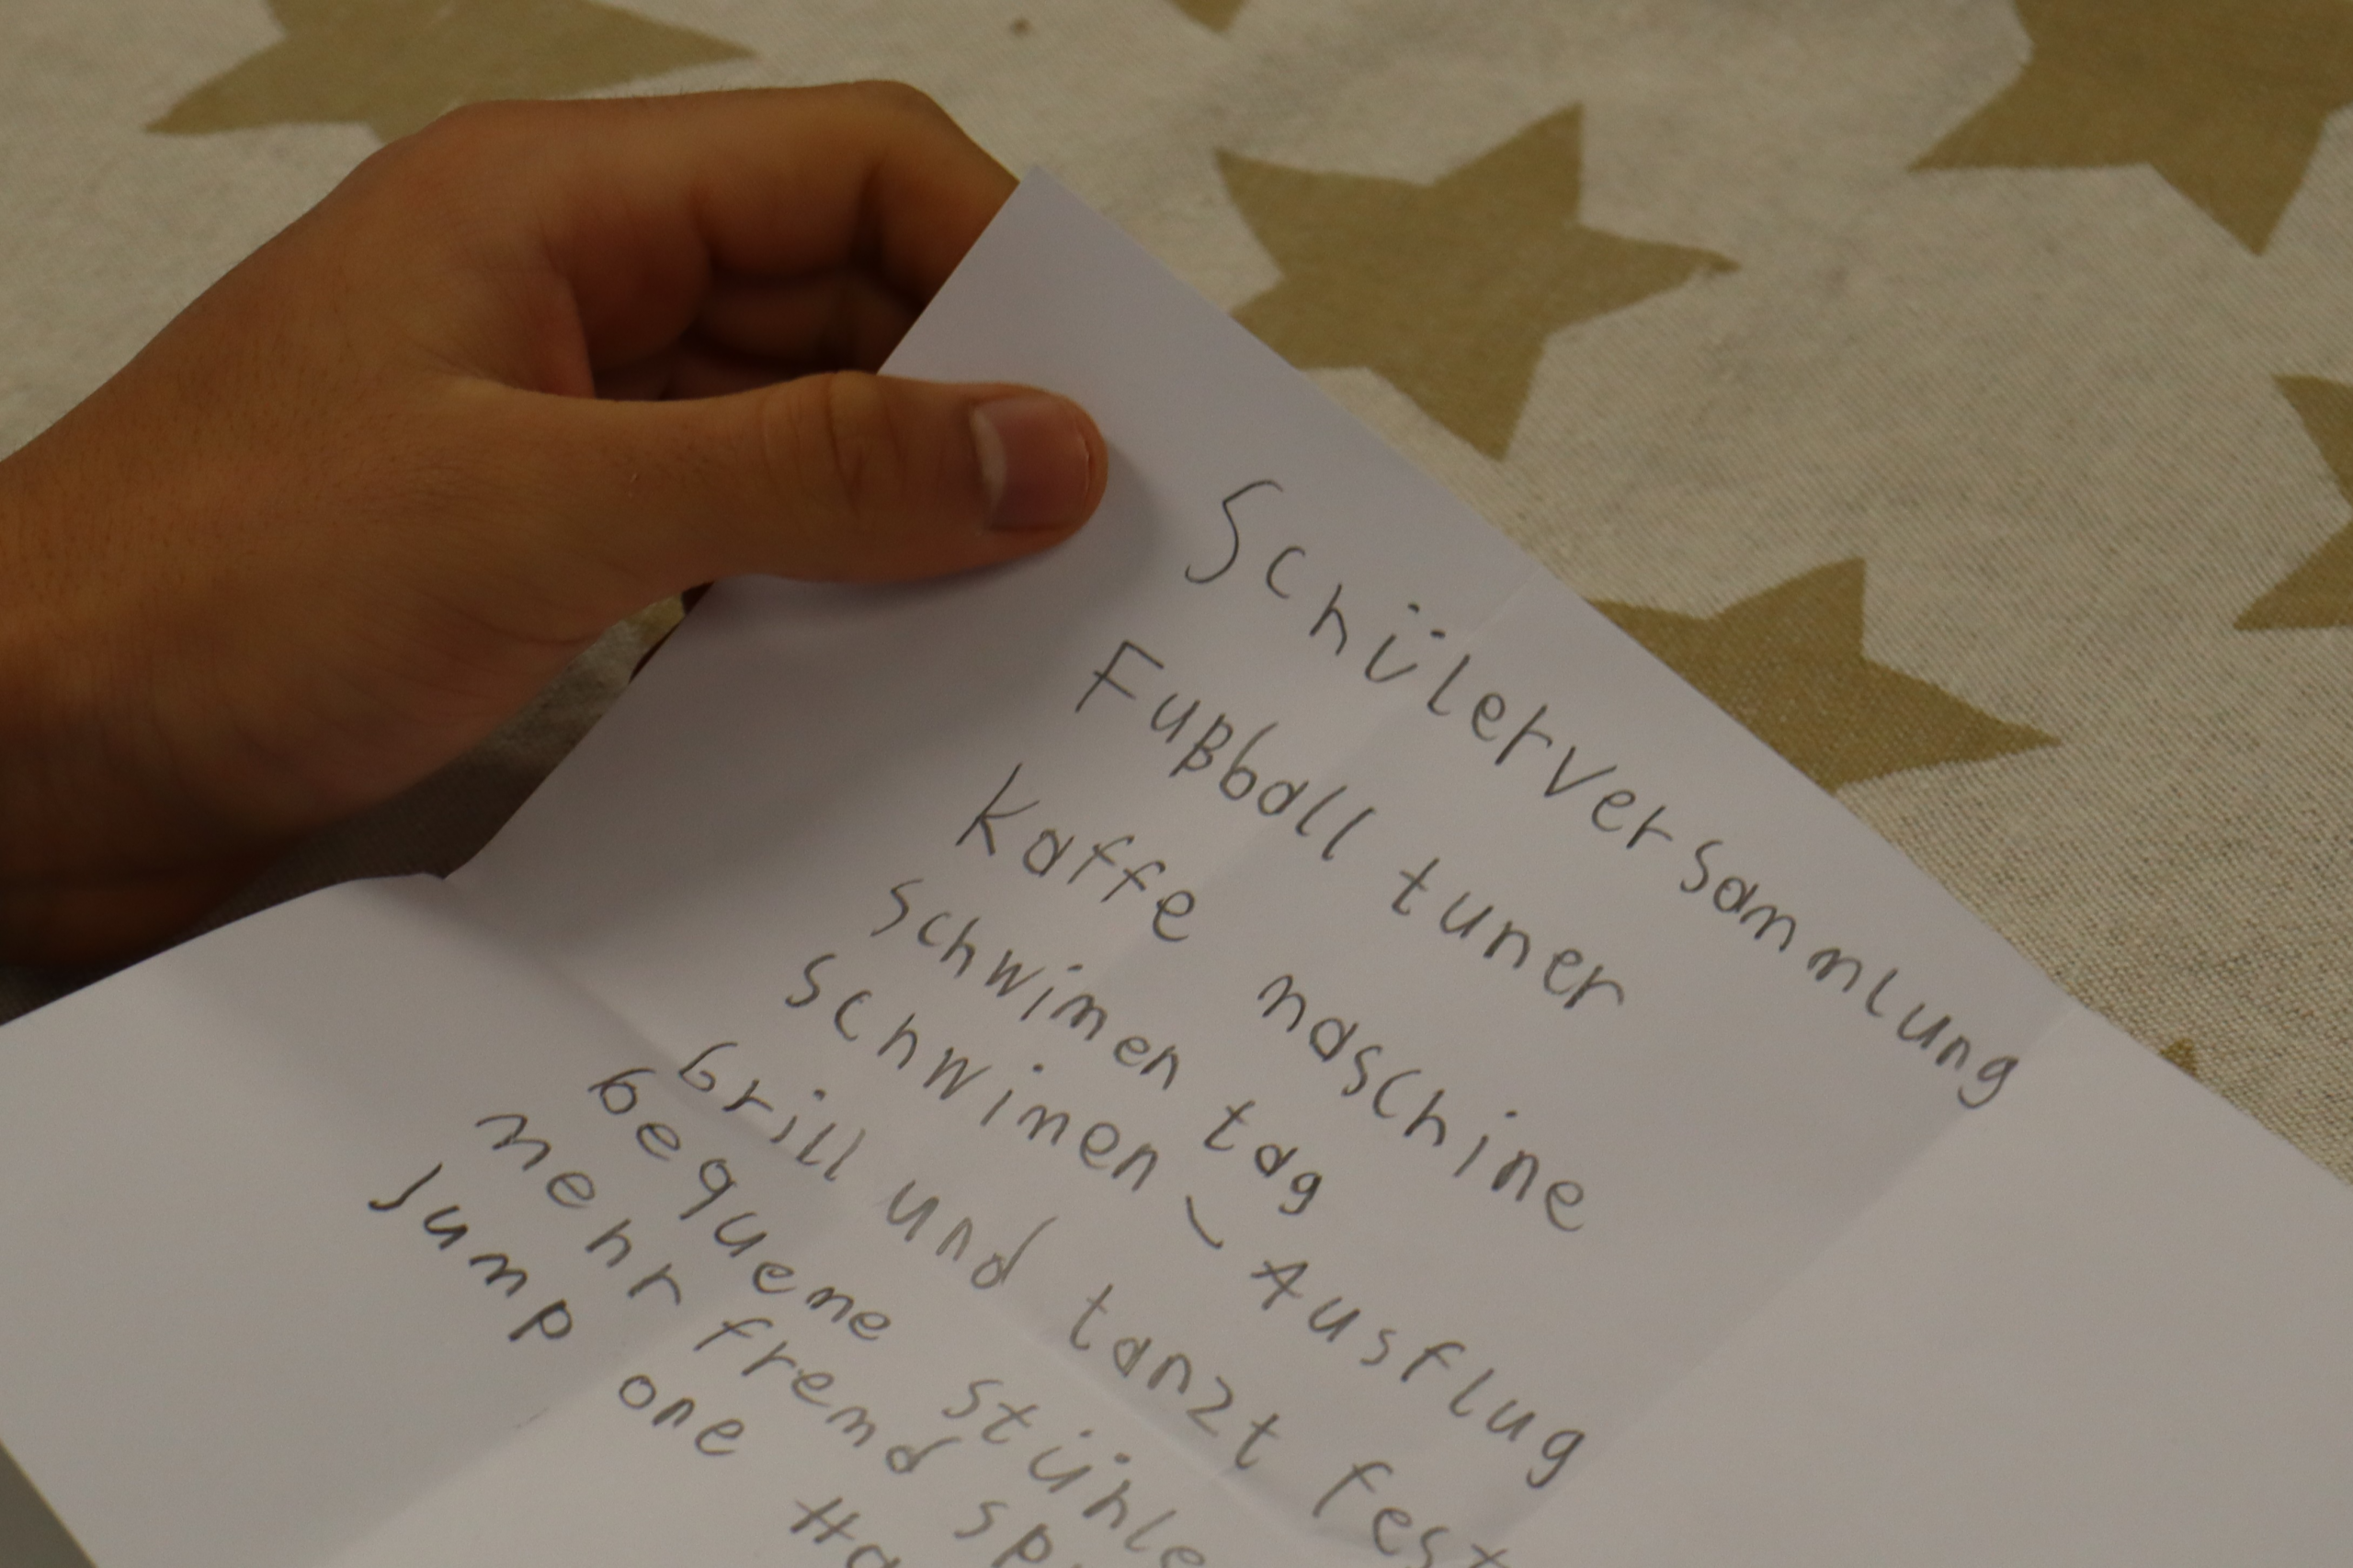 Schülerversammlung
Fußball tuner
Kaffe maschine
schwimen tag
schwimen - Ausflug
Grill und tanzt fest
bequeme stühle
mehr fremd
Jump one